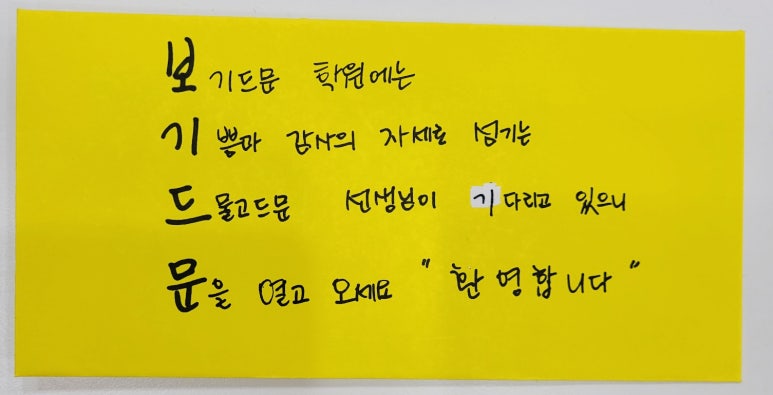 보기드문 학원에는
기쁨과 감사의 자세로 섬기는
드물고드문 선생님이 기다리고 있으니
문을 열고 오세요 "환영합니다"